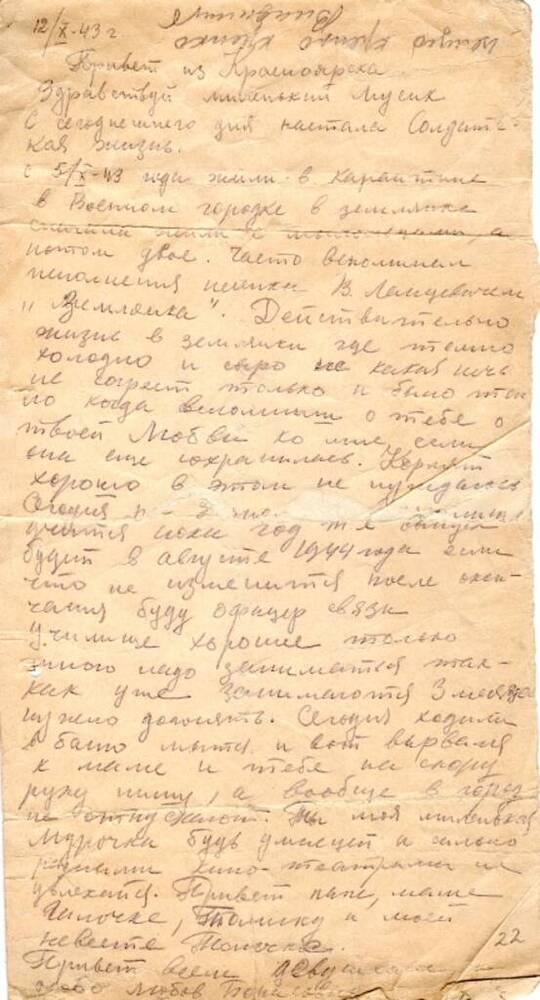 12/X-43 г.
крепко крепко
Привет из Красноярска
Здравствуй миленький Мусик
С сегоднешнего дня настала Солдатс-
кая жизнь.
с 5/X-43 года жили в карантине
в Военном городке в землянке
а
потом двое. Часто вспоминал
исполнения песенки В.
"Землянка". Действительно
жизнь в землянки где темно
холодно и сыро не какая печь
не согреет только и было теп
ло когда вспомниш о тебе о
твоей Любви ко мне, если
она еще сохранилась. Кормят
хорошо в этом не нуждаюсь
Сегодня
учится пока год т.к.
будит в августе 1944 года если
что не изменится после окон-
чания буду офицер связи
Училище хорошие только
много надо заниматся так-
как уже занимаются 3 месяца
нужно догонять. Сегодня ходили
в баню мытся и вот вырвался
к маме и тебе на скору
руку пишу, а вообще в город
не отпускают. Ты моя миленькая
Мурочка будь умницей и сильно
кино-театрами не
увлекайся. Привет папе, маме
Галочке, Толику и моей
невесте Томочке.
Привет всем девушкам и
Любовь Борисовне
22